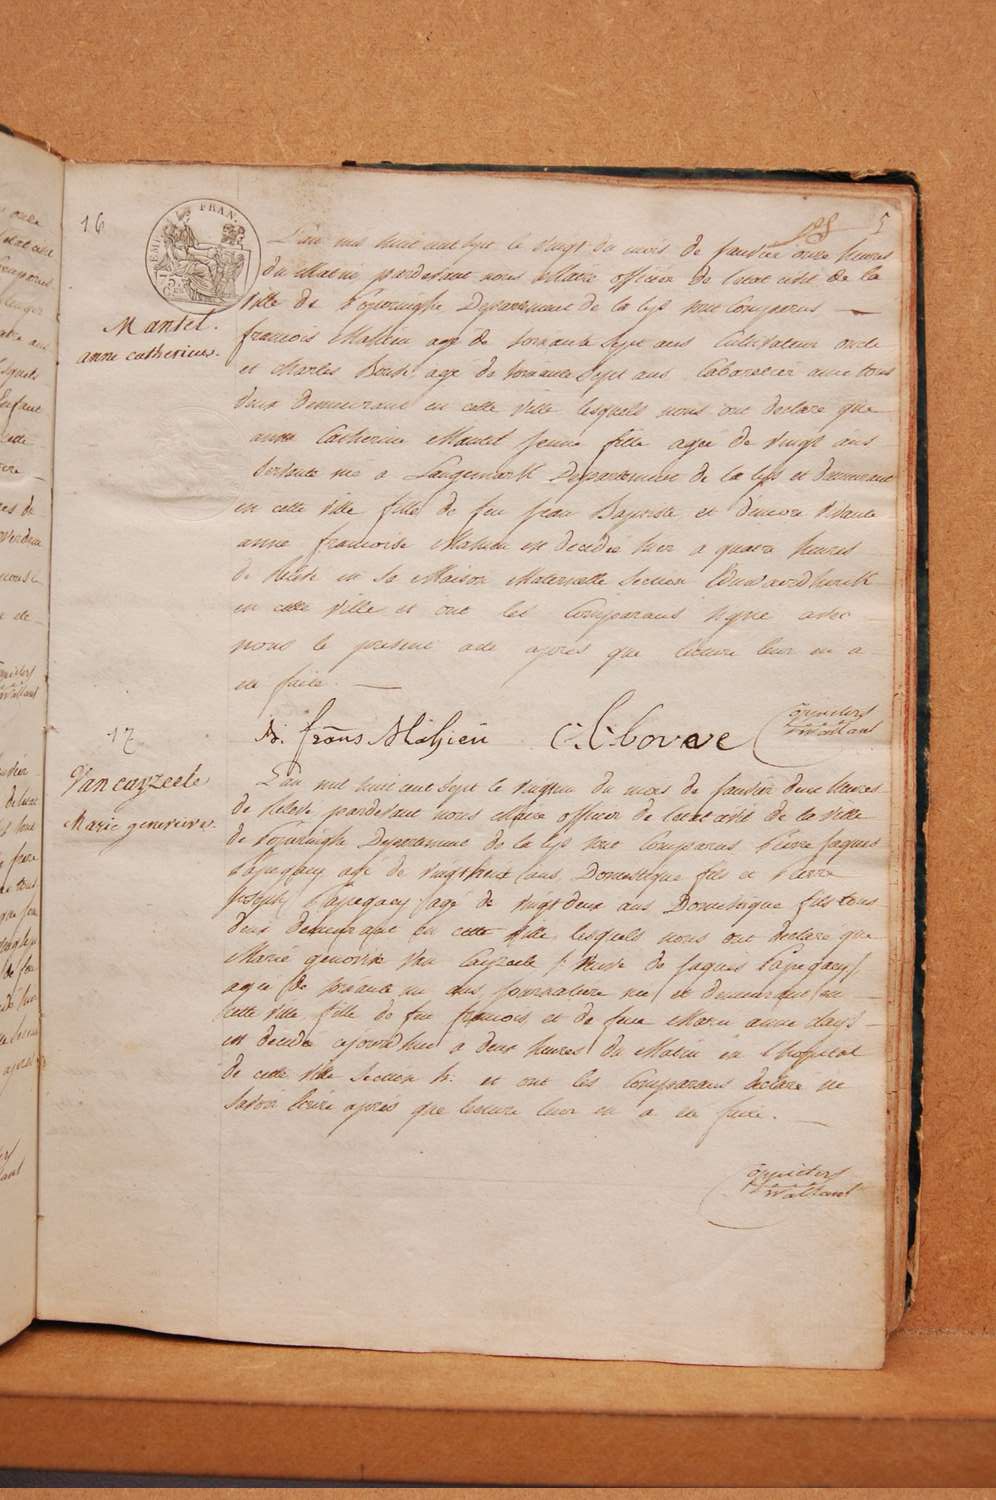 16
5
EMP FRAN.
L'an mil huit cent sept le vingt du mois de Janvier onze heures
du Matin pardevant nous Maire officier de l'etat civil de la
Ville de Poperinghe Departement de la Lys sont Comparus
Mantel.
anne catherine.
francois Mahieu agé de soixante Sept ans Cultivateur oncle
et Charles agé de Sept ans Laboureur
deux demeurant en cette Ville lesquels nous ont declaré que
anne Catherine Mantel Jeune fille agée de Vingt ans
née a Langemarck Departement de la Lys et demeurant
en cette Ville fille de feu Jean Baptiste et d'encore Vivante
anne francoise Mahieu est decedée hier a quatre heures
de Relevé en Sa Maison Maternelle Section
en cette Ville et ont les Comparans signé avec
nous le present acte après que lecture leur en a
été faite.
frans Mahieu
17
Van cayzeele
Marie genevieve.
L'an mil huit cent Sept le vingt un du mois de Janvier deux heures
de Relevé pardevant nous Maire officier de l'etat civil de la Ville
de Poperinghe Departement de la Lys sont Comparus Pierre Jaques
agé de vingt huit ans, Domestique fils et Pierre
Joseph agé de Vingt deux ans Domestique fils tous
deux demeurant en cette Ville, lesquels nous ont declaré que
Marie genevieve Van Cayzeele Veuve de Jaques
agée de soixante un ans Journaliere née et demeurant en
cette Ville fille de feu francois et de feue Marie anne
est decedée cejourdhui a deux heures du Matin en l'hopital
de cette Ville Section h. et ont les Comparans declaré ne
Savoir Ecrire après que lecture leur en a été faite.